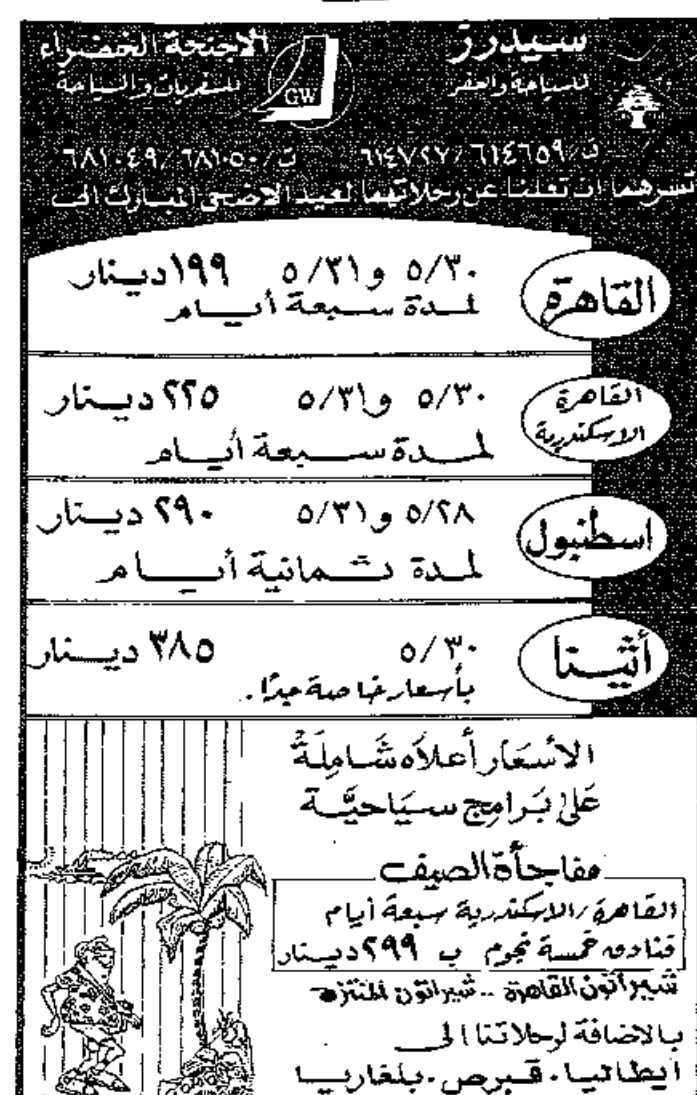 سيدرز
للسياحة والسفر
ت/٦١٤٦٥٩/٦١٤٧٢٧
الاجنحة الخضراء
للسفريات والسياحة
GW
ت/٦٨١٠٥٠/٦٨١٠٤٩
تسرهما ان تعلنا عن رحلاتهما لعيد الاضحى المبارك الى
القاهرة
٥/٣٠ و٥/٣١ ١٩٩ دينار
لمدة سبعة أيام
القاهرة
الاسكندرية
٥/٣٠ و٥/٣١ ٢٢٥ دينار
لمدة سبعة أيام
اسطنبول
٥/٢٨ و٥/٣١ ٢٩٠ دينار
لمدة ثمانية أيام
أثينا
٥/٣٠ ٣٨٥ دينار
بأسعار خاصة جدًا.
الأسعَار أعلاَه شَامِلَةْ
عَلىٰ بَرامِج سيَاحيَّة
مفاجأة الصيف
القاهرة/الاسكندرية سبعة أيام
فنادق خمسة نجوم ب ٢٩٩ دينار
شيراتون القاهرة .. شيراتون المنتزه
بالاضافة لرحلاتنا الى
ايطاليا . قبرص . بلغاريا